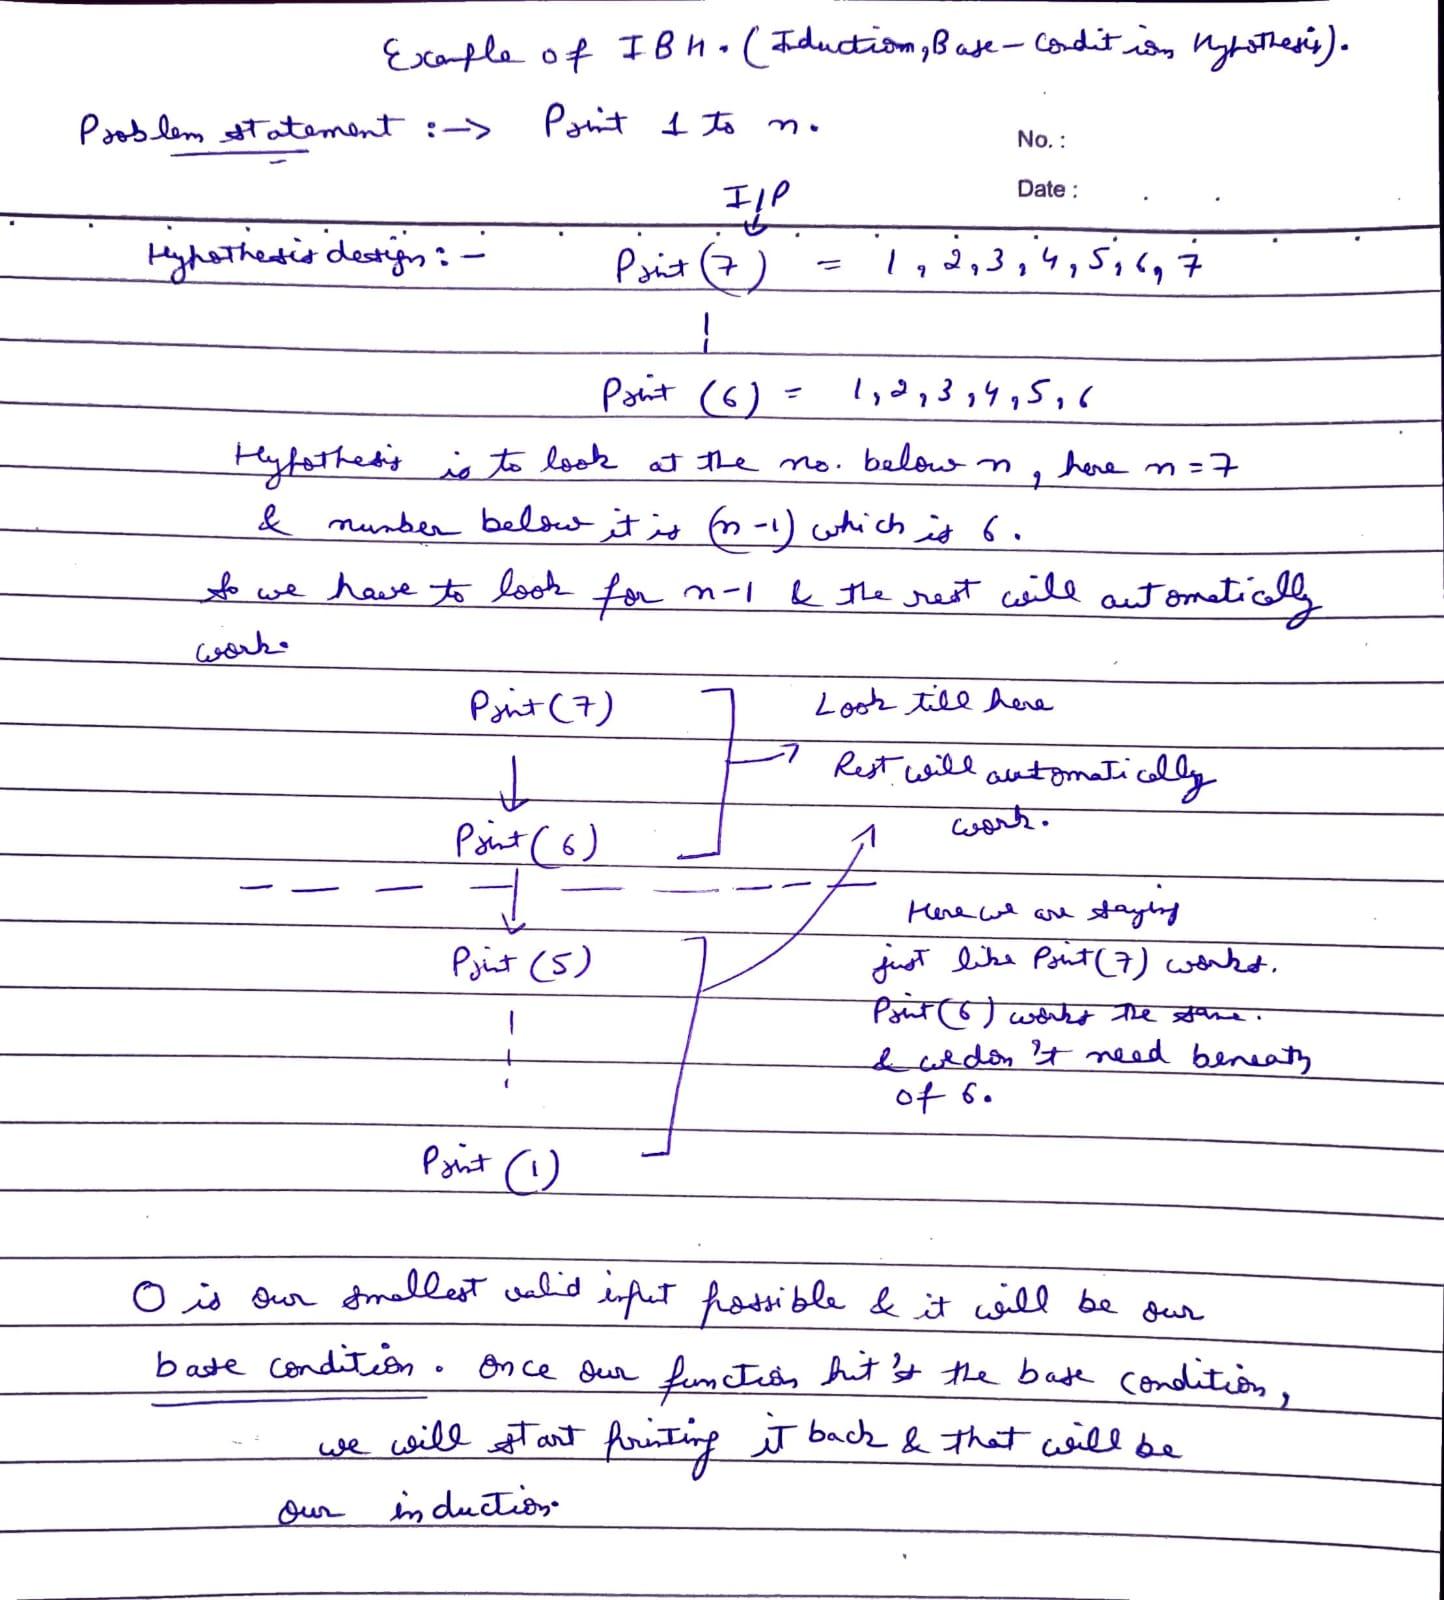 Example of IBH. (Iduction, Base-Condition Hypothesis).
Problem statement :-> Print 1 to n.
No. :
Date :
I/P
Hyphothesis design :- Print (7) = 1, 2, 3, 4, 5, 6, 7
Print (6) = 1, 2, 3, 4, 5, 6
Hyphothesis is to look at the no. below n, here n = 7
& number below it is (n-1) which is 6.
So we have to look for n-1 & the rest will automatically
work.
Print (7)
Look till here
Rest will automatically
work.
Print (6)
Here we are saying
just like Print (7) works.
Print (6) works the same.
& we don't need beneath
of 6.
Print (5)
Print (1)
0 is our smallest valid input possible & it will be our
base condition. Once our function hit's the base condition,
we will start printing it back & that will be
our induction.